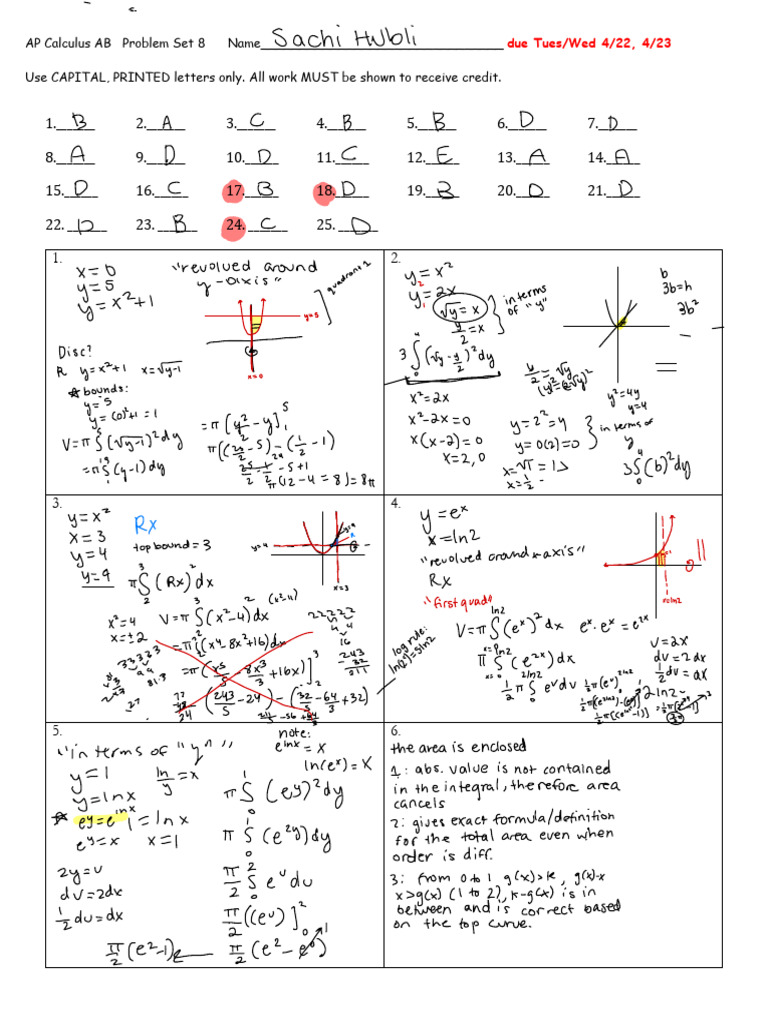 AP Calculus AB Problem Set 8 Name Sachi Hubli due Tues/Wed 4/22, 4/23
Use CAPITAL, PRINTED letters only. All work MUST be shown to receive credit.
1. B 2. A 3. C 4. B 5. B 6. D 7. D
8. A 9. D 10. D 11. C 12. E 13. A 14. A
15. D 16. C 17. B 18. D 19. B 20. D 21. D
22. D 23. B 24. C 25. D
1.
x=0
y=5
y=x²+1
"revolved around
y-axis"
quadrant 2
y=5
x=0
Disc?
R y=x²+1 x=√y-1
bounds:
y=5
y=(0)²+1=1
V=π∫(√y-1)²dy
=π∫(y-1)dy
=π[y²/2-y]
π[(25/2-5)-(1/2-1)
25/2-1/2-5+1
π(12-4=8)=8π
2.
y=x²
y=2x
√y=x
y/2=x
in terms
of "y"
b
3b=h
3b²
3∫(√y-y/2)²dy
x²=2x
x²-2x=0
x(x-2)=0
x=2,0
y=2²=4
y=0(2)=0
in terms of
y
y²=4y
y=4
3∫(b)²dy
3.
y=x²
x=3
y=4
y=4
Rx
top bound=3
y=4
x=3
π∫(Rx)²dx
x²=4
x=±2
V=π∫(x²-4)dx
=π∫(x⁴-8x²+16)dx
=π(x⁵/5-8x³/3+16x)]
(243/5-24)-(32/5-64/3+32)
4.
y=eˣ
x=ln2
"revolved around x-axis"
Rx
"first quad"
x=ln2
log rule:
V=π∫(eˣ)²dx eˣ·eˣ=e²ˣ
π∫(e²ˣ)dx
1/2π∫eᵛdv
v=2x
dv=2dx
1/2dv=dx
5.
"in terms of "y""
y=1
y=lnx
eʸ=eˡⁿˣ
1=lnx
eʸ=x x=1
note:
eˡⁿˣ=x
ln(eˣ)=x
π∫(eʸ)²dy
π∫(e²ʸ)dy
π/2∫eᵘdu
π/2[(eᵘ)]
π/2(e²-e⁰)
π/2(e²-1)
2y=u
du=2dx
1/2du=dx
6.
the area is enclosed
1: abs. value is not contained
in the integral, therefore area
cancels
2: gives exact formula/definition
for the total area even when
order is diff.
3: from 0 to 1 g(x)>x, g(x)-x
x>g(x) (1 to 2), x-g(x) is in
between and is correct based
on the top curve.